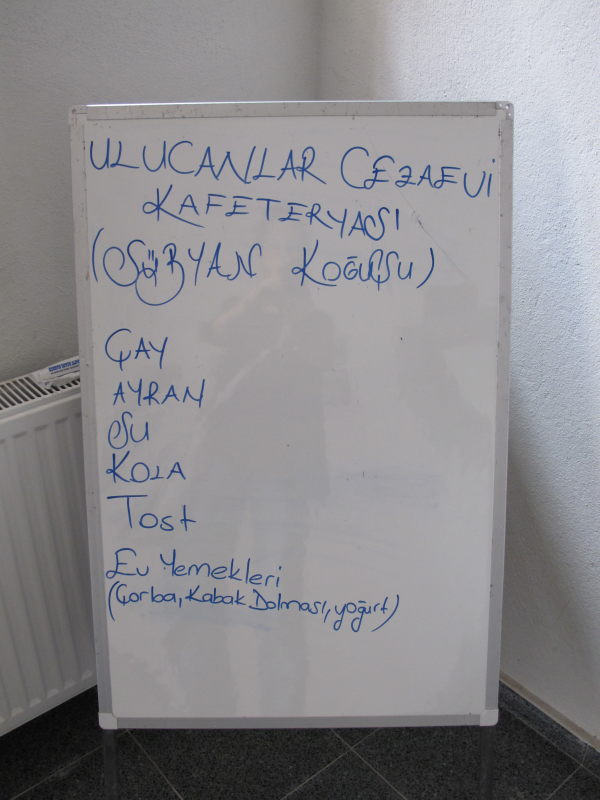 ULUCANLAR CEZAEVİ
KAFETERYASI
(SÜBYAN KOĞUŞU)
ÇAY
AYRAN
SU
KOLA
Tost
Ev Yemekleri
(Çorba, Kabak Dolması, yoğurt)